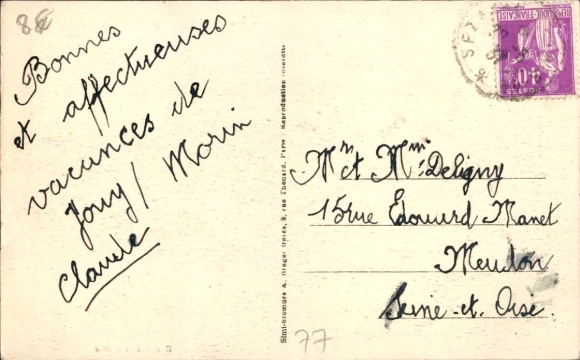 8€
Bonnes
et affectueuses
vacances de
Jouy / Morin
Claude
Simi-bromure A. Breger frères, 9, rue Thénard, Paris - Reproduction interdite
77
Mr et Mme Deligny
15 rue Édouard Manet
Meudon
Seine-et-Oise.
40c
POSTES